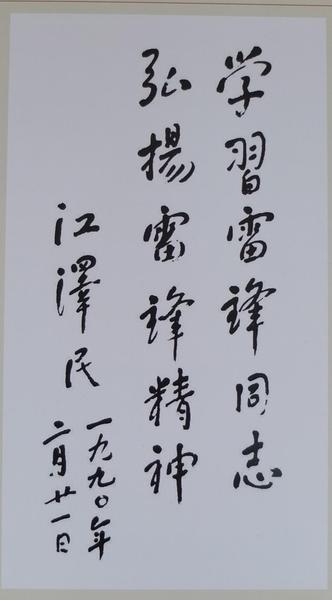 学習雷锋同志
弘揚雷锋精神
江澤民
一九九〇年
二月廿一日